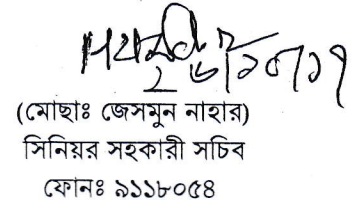 ২৬/১০/১৭
(মোছাঃ জেসমুন নাহার)
সিনিয়র সহকারী সচিব
ফোনঃ ৯১১৮০৫৪